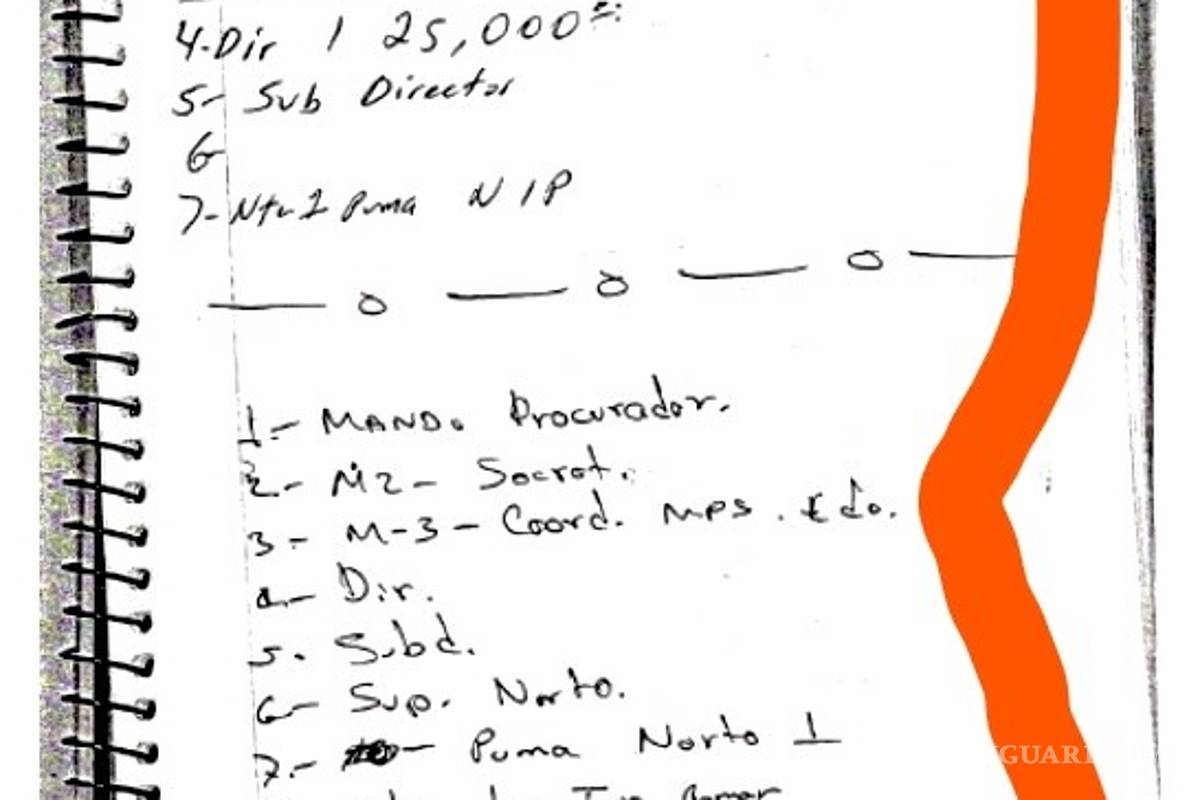 4-Dir 1 25,000
5- Sub Director
6-
7- Nte 1 Puma N 1 P
1.- MANDo Procurador.
2.- M2- Secret.
3- M-3- Coord. MPS. Edo.
4- Dir.
5. Subd.
6- Sup. Norte.
7.- Puma Norte 1
GUAR